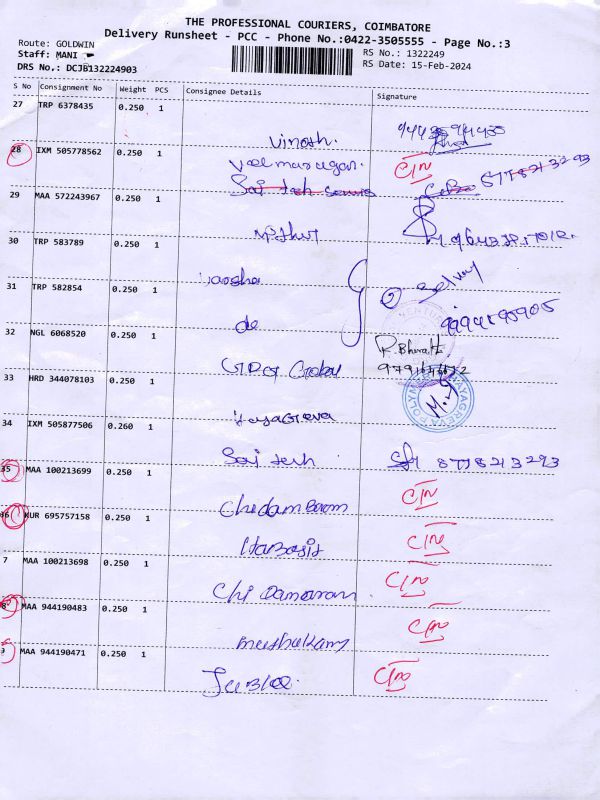 THE PROFESSIONAL COURIERS, COIMBATORE
Delivery Runsheet - PCC - Phone No.:0422-3505555 - Page No.:3
Route: GOLDWIN
RS No.: 1322249
Staff: MANI
RS Date: 15-Feb-2024
DRS No.: DCJB132224903
S No Consignment No Weight PCS Consignee Details Signature
27 TRP 6378435 0.250 1
Vinoth
28 IXM 505778562 0.250 1
Velmurugan. C/N
Sai tech 8778213293
29 MAA 572243967 0.250 1
30 TRP 583789 0.250 1
31 TRP 582854 0.250 1
Selvey
de 9994895905
32 NGL 6068520 0.250 1
R.Bharathi
Global
33 HRD 344078103 0.250 1
Hayagreva
34 IXM 505877506 0.260 1
Sai tech 8778213293
35 MAA 100213699 0.250 1
Chedambaram C/N
36 KUR 695757158 0.250 1
C/N
7 MAA 100213698 0.250 1
Chidamaram C/N
8 MAA 944190483 0.250 1
C/N
9 MAA 944190471 0.250 1
C/N